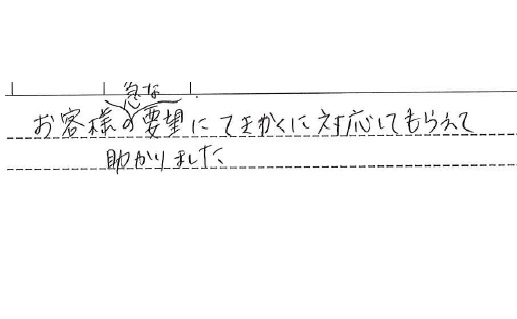 お客様の急な要望にてきかくに対応してもらえて
助かりました